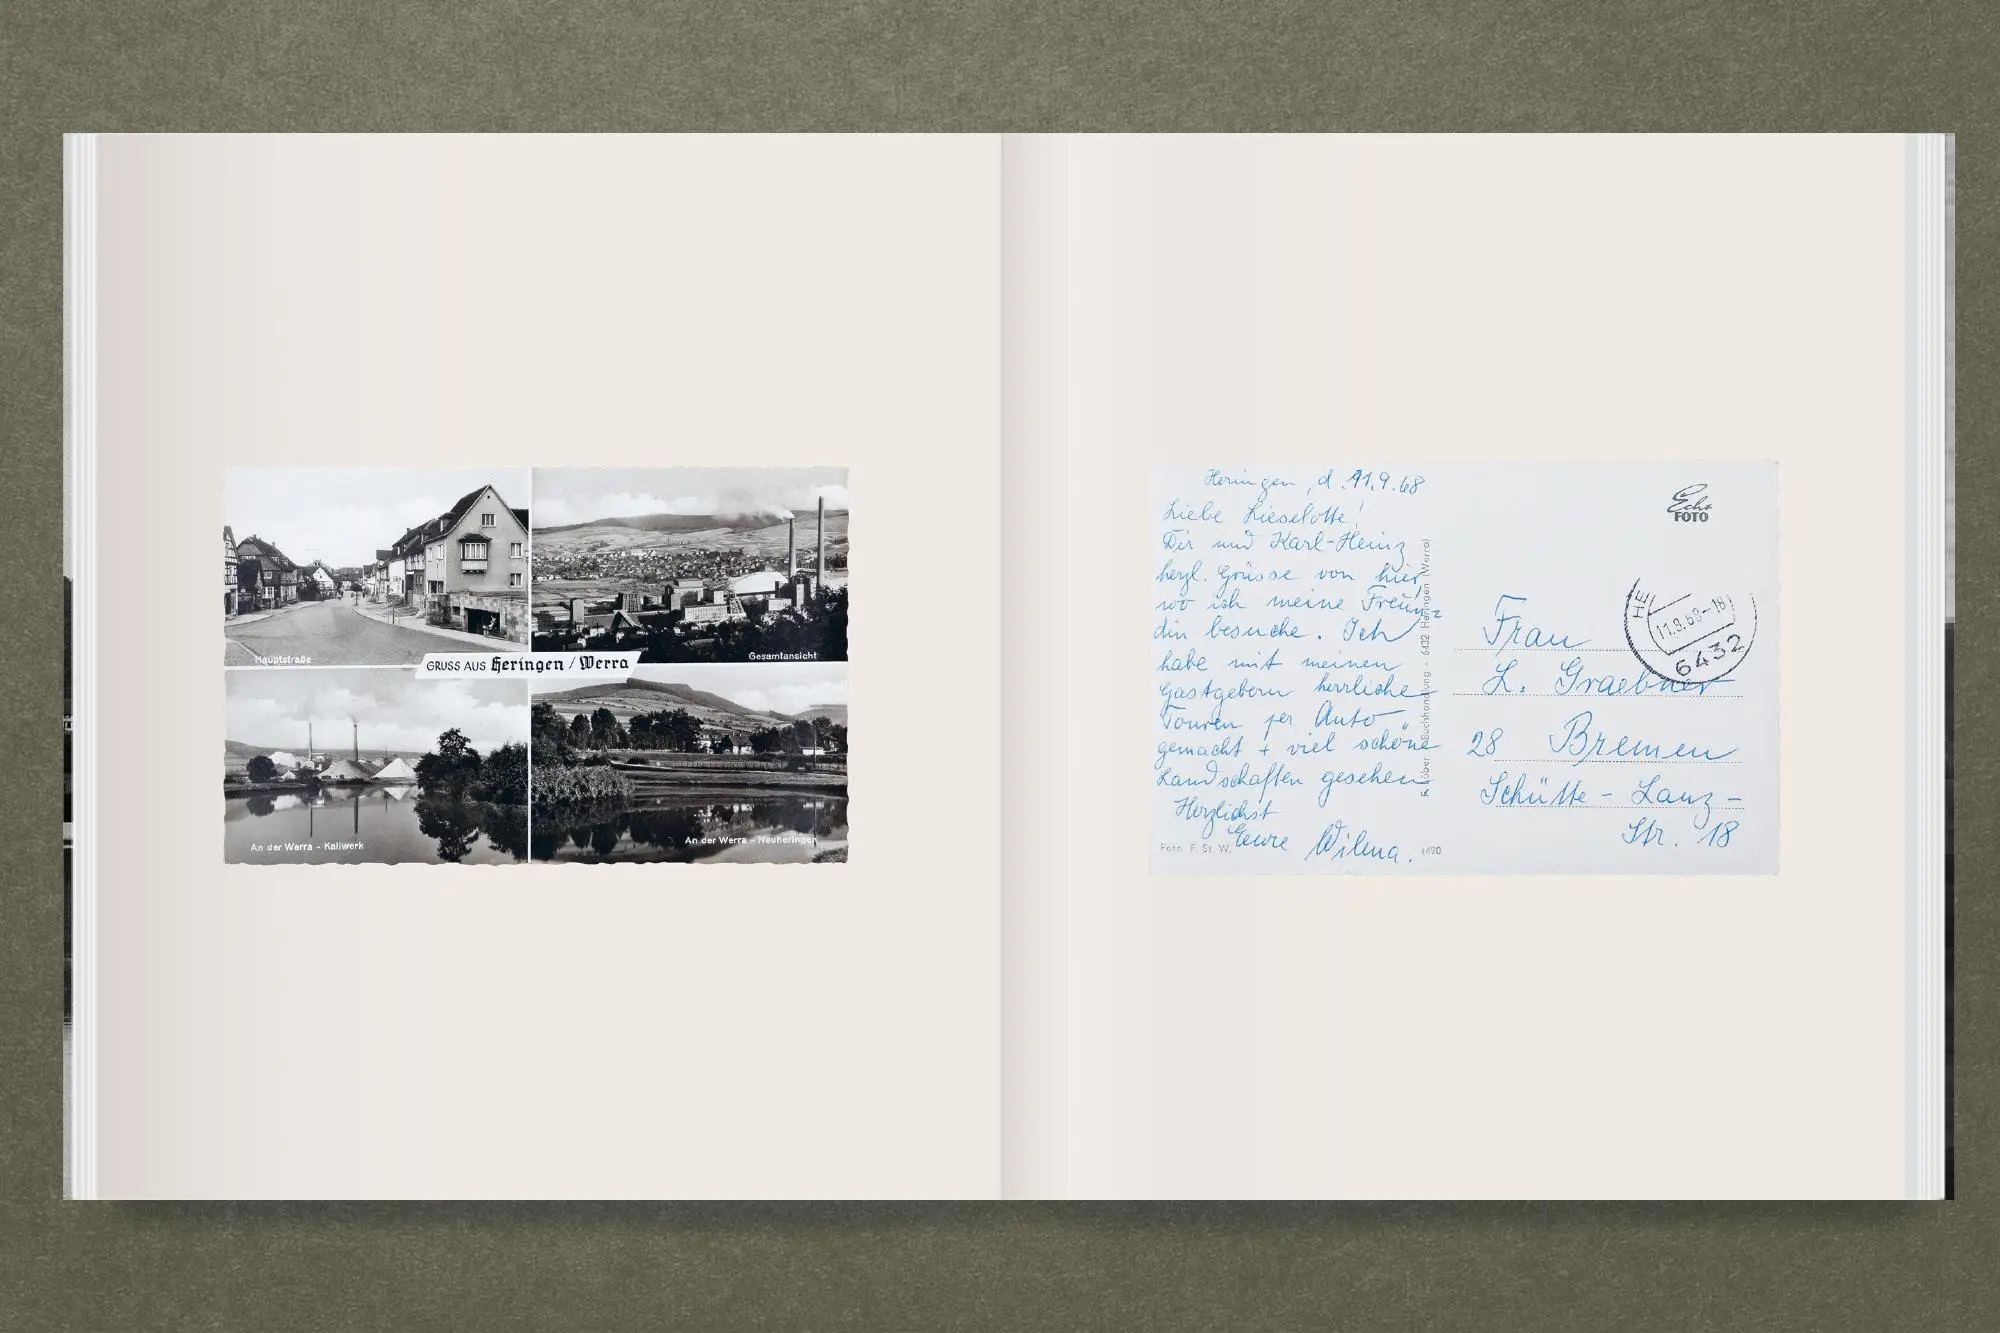 Hauptstraße
Gesamtansicht
GRUSS AUS Heringen / Werra
An der Werra - Kaliwerk
An der Werra - Neuheringen
Heringen, d. 11.9.68
Liebe Lieselotte!
Dir und Karl-Heinz
herzl. Grüsse von hier,
wo ich meine Freun=
din besuche. Ich
habe mit meinen
Gastgebern herrliche
Touren per Auto
gemacht + viel schöne
Landschaften gesehen.
Herzlichst
Eure Wilma.
Foto F. St. W.
1420
Buchhandlung - 6432 Heringen (Werra)
Echt
FOTO
HE
11.9.68-18
6432
Frau
L. Graebner
28 Bremen
Schütte-Lanz-
Str. 18